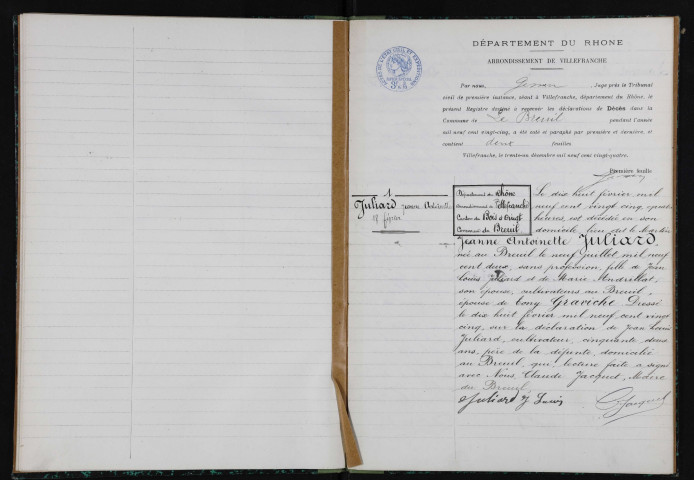 DÉPARTEMENT DU RHONE
ARRONDISSEMENT DE VILLEFRANCHE
Par nous, Juge près le Tribunal
civil de première instance, séant à Villefranche, département du Rhône, le
présent Registre destiné à recevoir les déclarations de Décès dans la
Commune de Le Breuil pendant l'année
mil neuf cent vingt-cinq, a été coté et paraphé par première et dernière, et
contient deux feuilles
Villefranche, le trente-un décembre mil neuf cent vingt-quatre.
Première feuille
1
Juliard Jeanne Antoinette
18 février
Département du Rhône
Arrondissement de Villefranche
Canton du Bois d'Oingt
Commune du Breuil
Le dix huit février mil
neuf cent vingt cinq,
heures, est décédée en son
domicile, lieu dit le
Jeanne Antoinette Juliard,
née au Breuil le neuf Juillet mil neuf
cent deux, sans profession, fille de Jean
Louis Juliard et de Marie Andrillat,
son épouse, cultivateurs au Breuil,
épouse de Tony Graviche. Dressé
le dix huit février mil neuf cent vingt
cinq, sur la déclaration de Jean Louis
Juliard, cultivateur, cinquante deux
ans, père de la défunte, domicilié
au Breuil, qui, lecture faite a signé
avec Nous, Claude Jacquet, Maire
du Breuil.
Juliard J. Louis
C. Jacquet